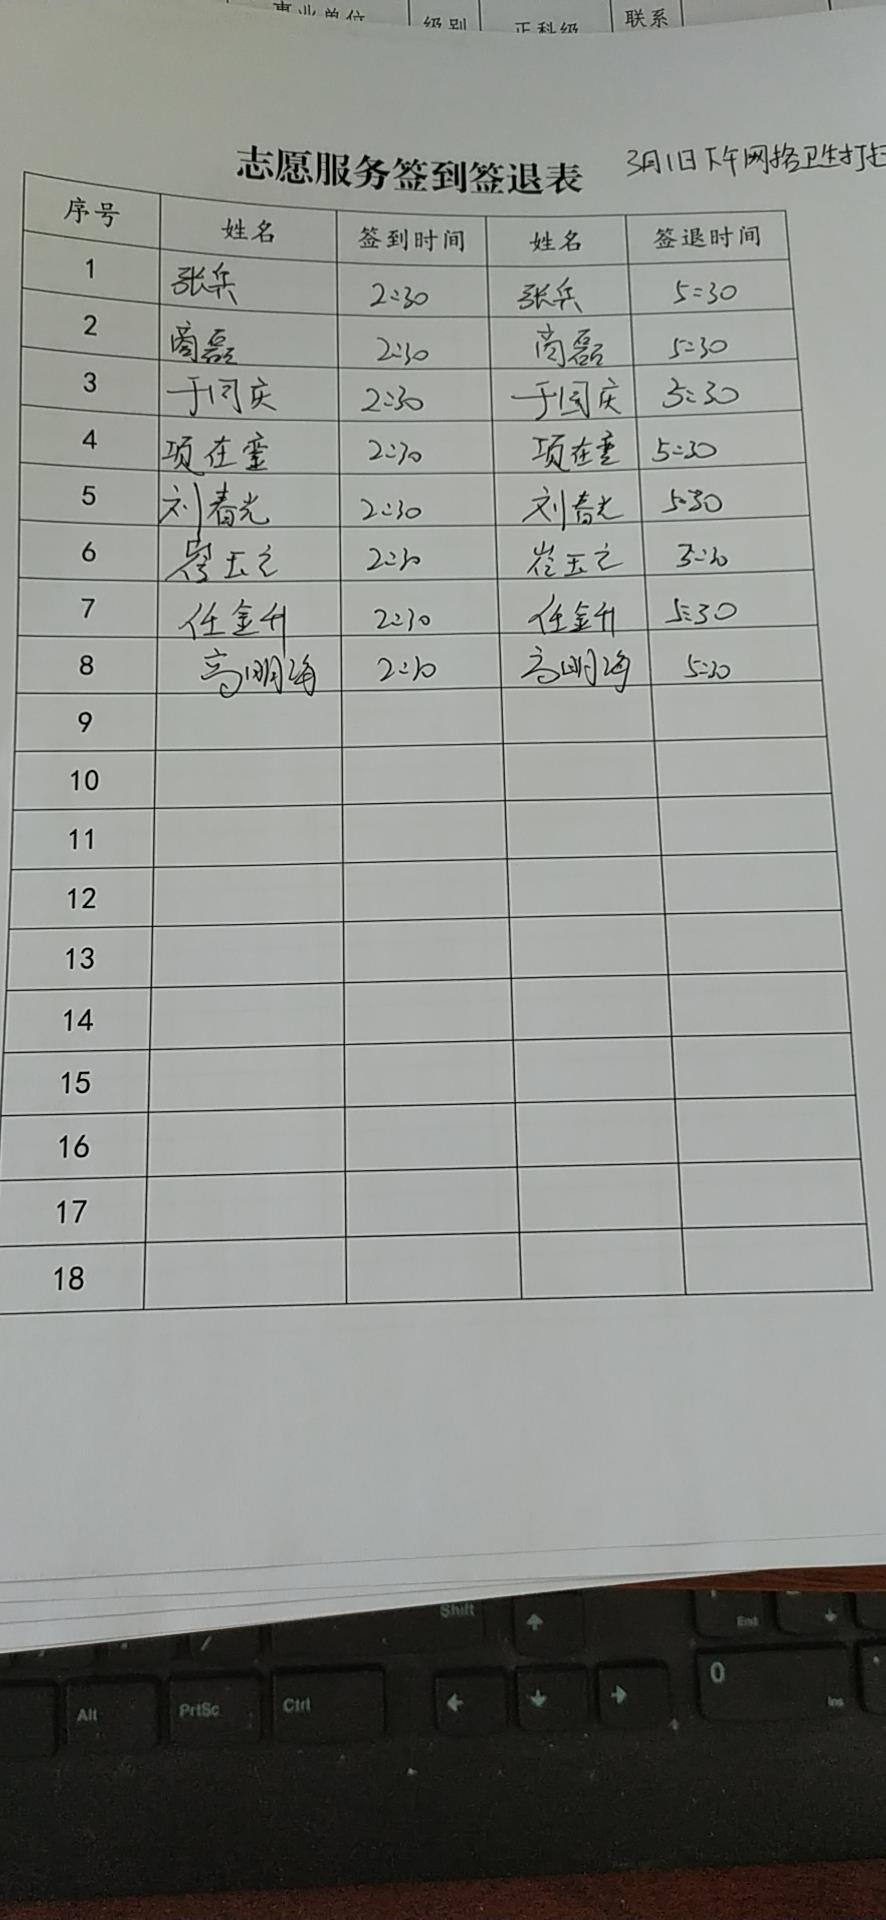 事业单位 级别 正科级 联系
志愿服务签到签退表 3月1日下午网格卫生打扫
序号 姓名 签到时间 姓名 签退时间
1 张兵 2:30 张兵 5:30
2 商磊 2:30 商磊 5:30
3 于国庆 2:30 于国庆 5:30
4 项在 2:30 项在 5:30
5 刘春光 2:30 刘春光 5:30
6 崔玉之 2:30 崔玉之 5:30
7 任金升 2:30 任金升 5:30
8 高明海 2:30 高明海 5:30
9
10
11
12
13
14
15
16
17
18
/ Shift ↑ End
Alt PrtSc Ctrl ← ↓ → 0 Ins